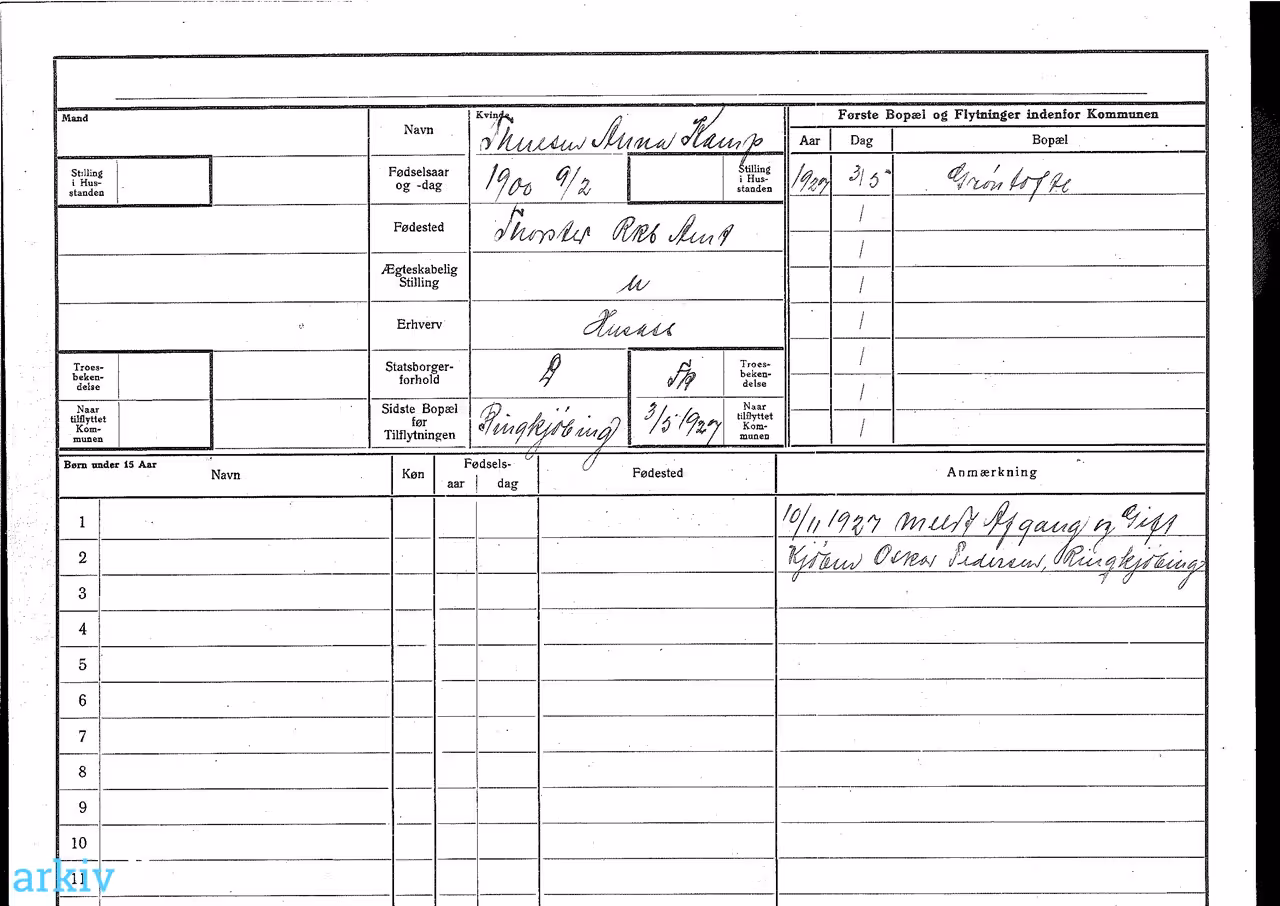 Mand
Navn
Kvinde
Thuesen Anna Kamp
Første Bopæl og Flytninger indenfor Kommunen
Aar Dag Bopæl
Stilling
i Hus-
standen
Fødselsaar
og -dag
1900 9/2
Stilling
i Hus-
standen
1927 3/5 Grøntofte
Fødested
Thorsted Rkb Amt
/
/
Ægteskabelig
Stilling
u
/
Erhverv
Husass
/
Troes-
beken-
delse
Statsborger-
forhold
D
Fk
Troes-
beken-
delse
/
/
Naar
tilflyttet
Kom-
munen
Sidste Bopæl
før
Tilflytningen
Ringkjøbing
3/5 1927
Naar
tilflyttet
Kom-
munen
/
Børn under 15 Aar
Navn
Køn
Fødsels-
aar dag
Fødested
Anmærkning
1
10/11 1927 meldt Afgang og Gift
2
Kjøbm Oskar Pedersen, Ringkjøbing
3
4
5
6
7
8
9
10
11
arkiv